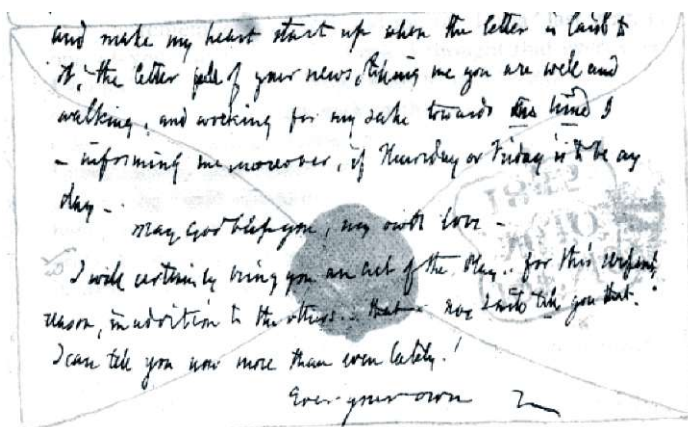 and make my heart start up when the letter is laid to
it, the letter full of your news, telling me you are well and
walking, and working for my sake towards the time
– informing me, moreover, if Thursday or Friday is to be my
day –
May God bless you, my own love –
I will certainly bring you an act of the Play .. for this serpent's
reason, in addition to the others .. that – no, I will tell you that!
I can tell you now more than even lately!
Ever your own